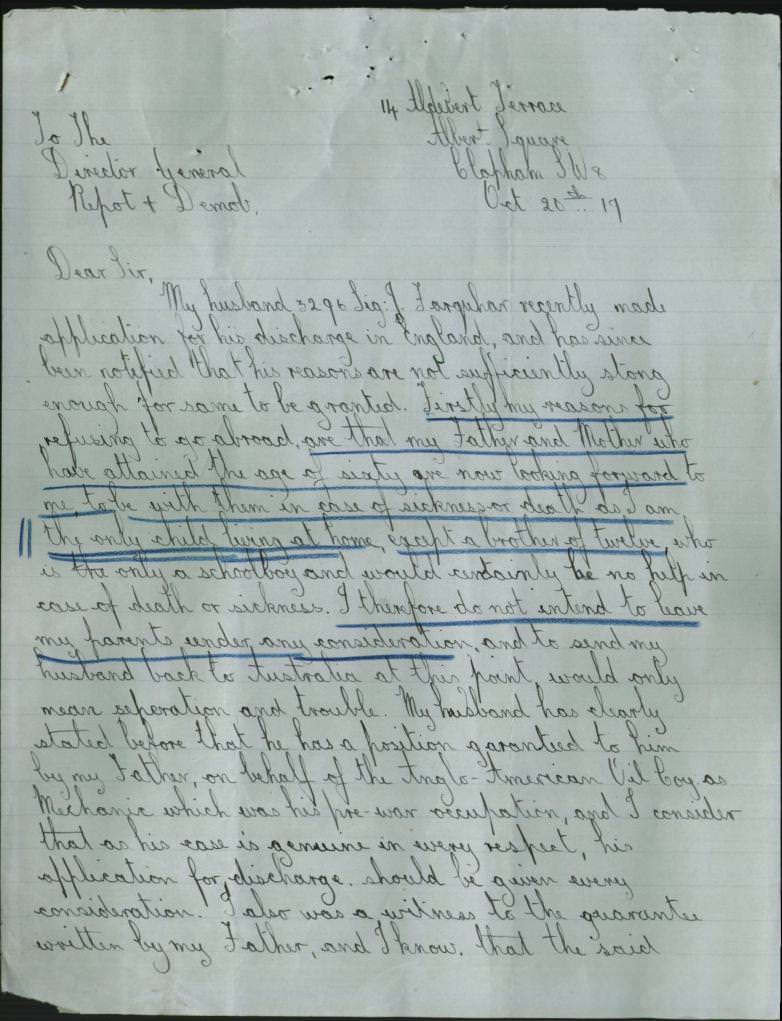 14 Aldebert Terrace
Albert Square
Clapham S W 8
Oct 20th 19
To The
Director General
Repat + Demob.
Dear Sir,
My husband 3296 Sig: J. Farquhar recently made
application for his discharge in England, and has since
been notified that his reasons are not sufficiently stong
enough for same to be granted. Firstly my reasons for
refusing to go abroad, are that my Father and Mother who
have attained the age of sixty are now looking forward to
me, to be with them in case of sickness or death as I am
the only child living at home, except a brother of twelve, who
is the only a schoolboy and would certainly be no help in
case of death or sickness. I therefore do not intend to leave
my parents under any consideration, and to send my
husband back to Australia at this point, would only
mean seperation and trouble. My husband has clearly
stated before that he has a position garantied to him
by my Father, on behalf of the Anglo-American Oil Coy, as
Mechanic which was his pre-war occupation, and I consider
that as his case is genuine in every respect, his
application for discharge. should be given every
consideration. I also was a witness to the guarantee
written by my Father, and I know. that the said